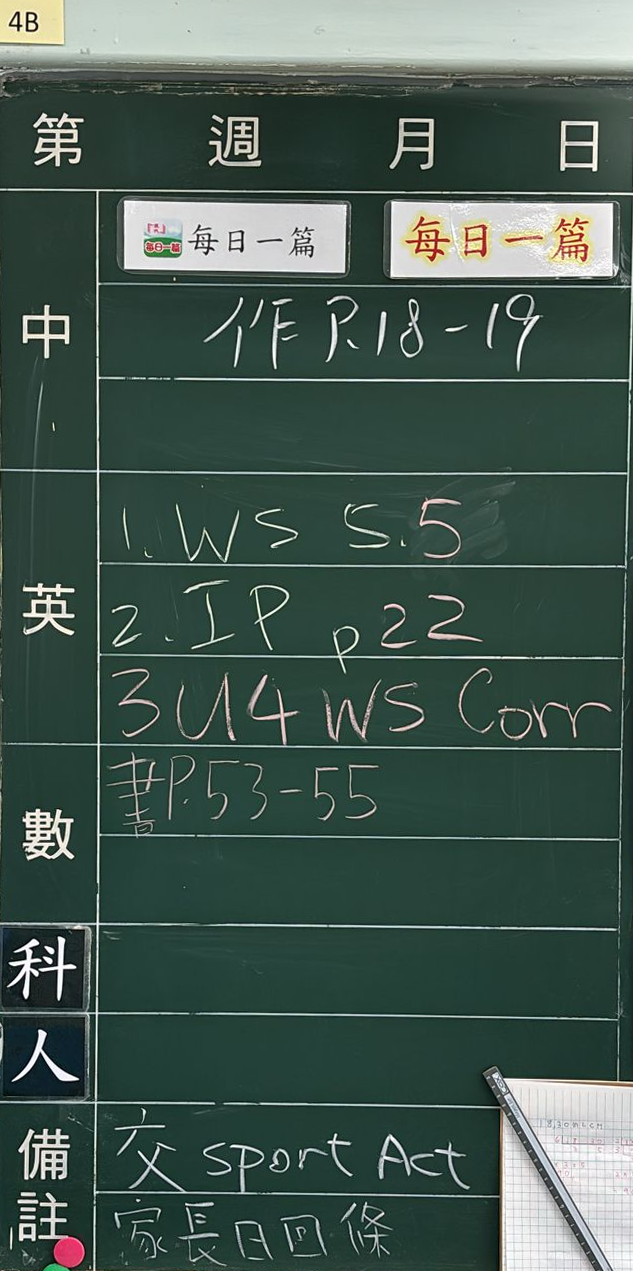 4B
第 週 月 日
每日一篇 每日一篇 每日一篇
中
作 P.18-19
英
1. WS 5.5
2. IP p22
3 U4 WS Corr
數
書P.53-55
科
人
備註
交 sport Act
家長日回條